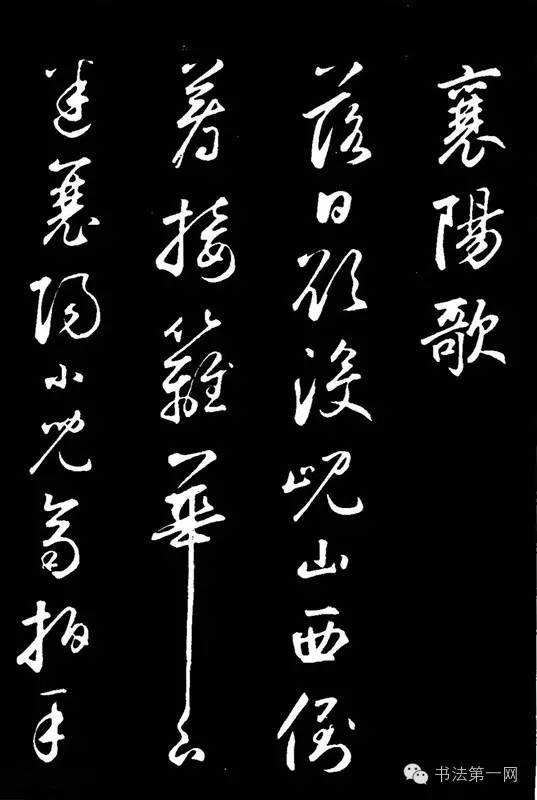 襄陽歌
落日欲没峴山西倒
著接籬華下
迷襄陽小兒齊拍手
书法第一网